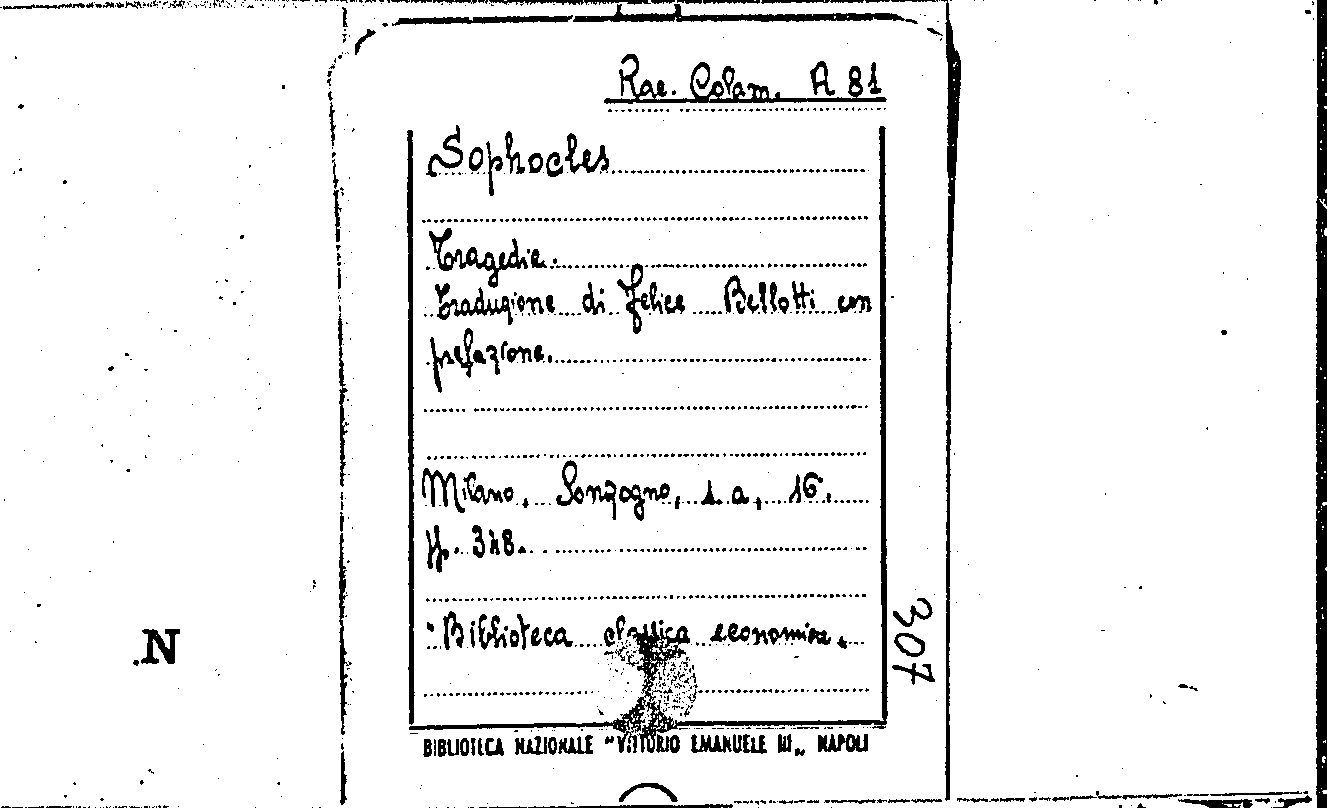 Rac. Colam. A 81
Sophocles
Tragedie.
Traduzione di Felice Bellotti con
prefazione.
Milano, Sonzogno, s. a, 16.
pp. 348.
"Biblioteca classica economica"
307
.N
BIBLIOTECA NAZIONALE "VITTORIO EMANUELE III„ NAPOLI